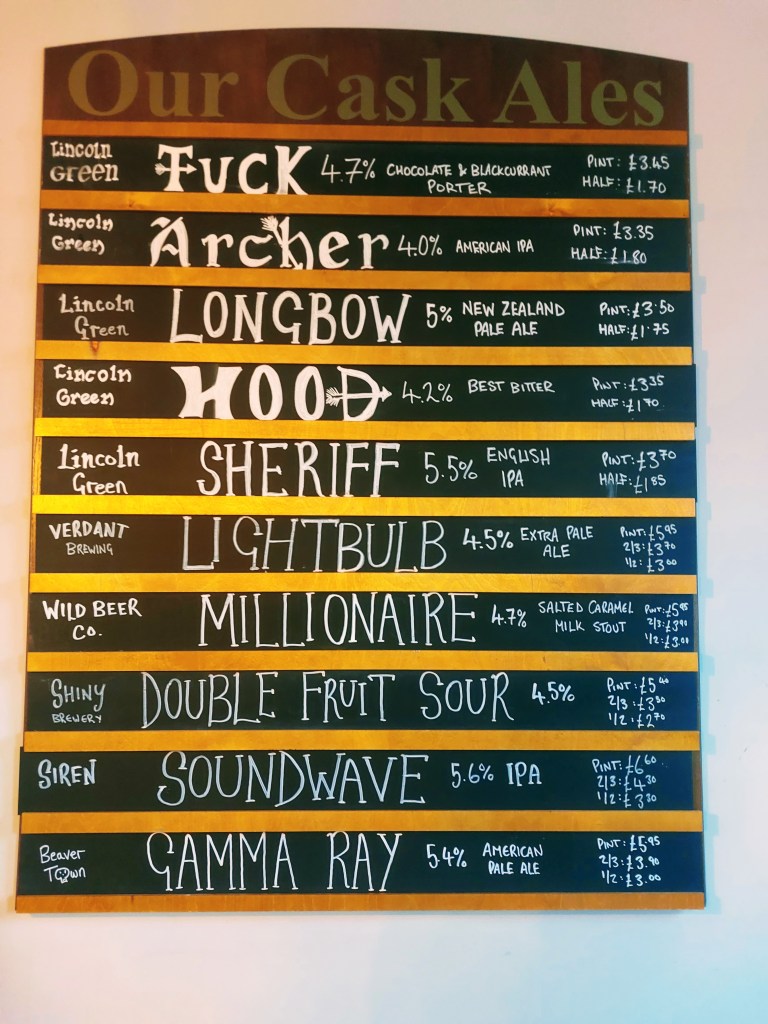 Our Cask Ales
Lincoln Green TUCK 4.7% CHOCOLATE & BLACKCURRANT PORTER PINT: £3.45 HALF: £1.70
Lincoln Green Archer 4.0% AMERICAN IPA PINT: £3.35 HALF: £1.80
Lincoln Green LONGBOW 5% NEW ZEALAND PALE ALE PINT: £3.50 HALF: £1.75
Lincoln Green HOOD 4.2% BEST BITTER PINT: £3.35 HALF: £1.70
Lincoln Green SHERIFF 5.5% ENGLISH IPA PINT: £3.70 HALF: £1.85
VERDANT BREWING LIGHTBULB 4.5% EXTRA PALE ALE PINT: £5.95 2/3: £3.70 1/2: £3.00
WILD BEER CO. MILLIONAIRE 4.7% SALTED CARAMEL MILK STOUT PINT: £5.95 2/3: £3.90 1/2: £3.00
SHINY BREWERY DOUBLE FRUIT SOUR 4.5% PINT: £5.40 2/3: 1/2: £2.70
SIREN SOUNDWAVE 5.6% IPA PINT: £6.60 2/3: £4.30 1/2: £3.30
Beaver Town GAMMA RAY 5.4% AMERICAN PALE ALE PINT: £5.95 2/3: £3.90 1/2: £3.00